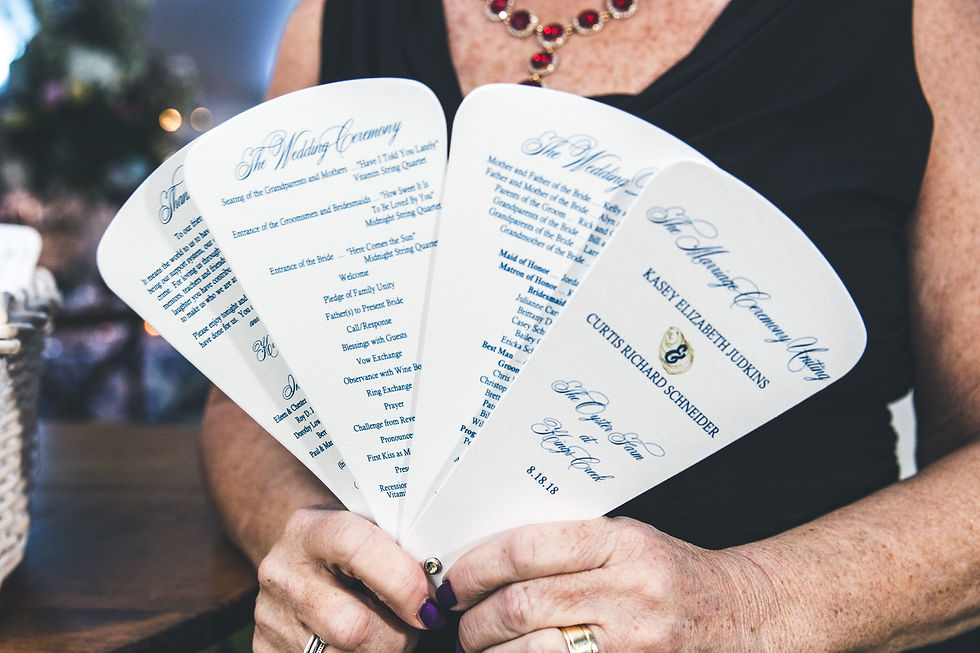 To our frien
It means the world to us to hav
being our support system, our c
crime. For loving us through
mentors, teachers and friends
laughter you have contribu
to make us who we are a
Please enjoy tonight and
have done for us. You a
and
Eileen & Chester
Roy D. J
Dorothy Low
Paul & Mar
(in
The Wedding Ceremony
Seating of the Grandparents and Mothers ... "Have I Told You Lately"
Vitamin String Quartet
Entrance of the Groomsmen and Bridesmaids ... "How Sweet It Is
To Be Loved By You"
Midnight String Quartet
Entrance of the Bride ... "Here Comes the Sun"
Midnight String Quartet
Welcome
Pledge of Family Unity
Father(s) to Present Bride
Call/Response
Blessings with Guests
Vow Exchange
Observance with Wine Bo
Ring Exchange
Prayer
Challenge from Reve
Pronounce
First Kiss as M
Prese
Recession
Vitam
The Wedding
Mother and Father of the Bride
Father and Mother of the Bride ... Kelly
Parents of the Groom ... Rick and
Grandparents of the Bride
Grandparents of the Bride
Grandmother of the Bride
Maid of Honor ... Jorda
Matron of Honor
Bridesmaids
Julianne Car
Brittany D
Casey Sch
Bailey
Ericka Sc
Best Man ...
Groom
Chris
Christop
Brett
Pat
Wil
The Marriage Ceremony Uniting
KASEY ELIZABETH JUDKINS
&
CURTIS RICHARD SCHNEIDER
The Oyster Farm
at
Kings Creek
8.18.18